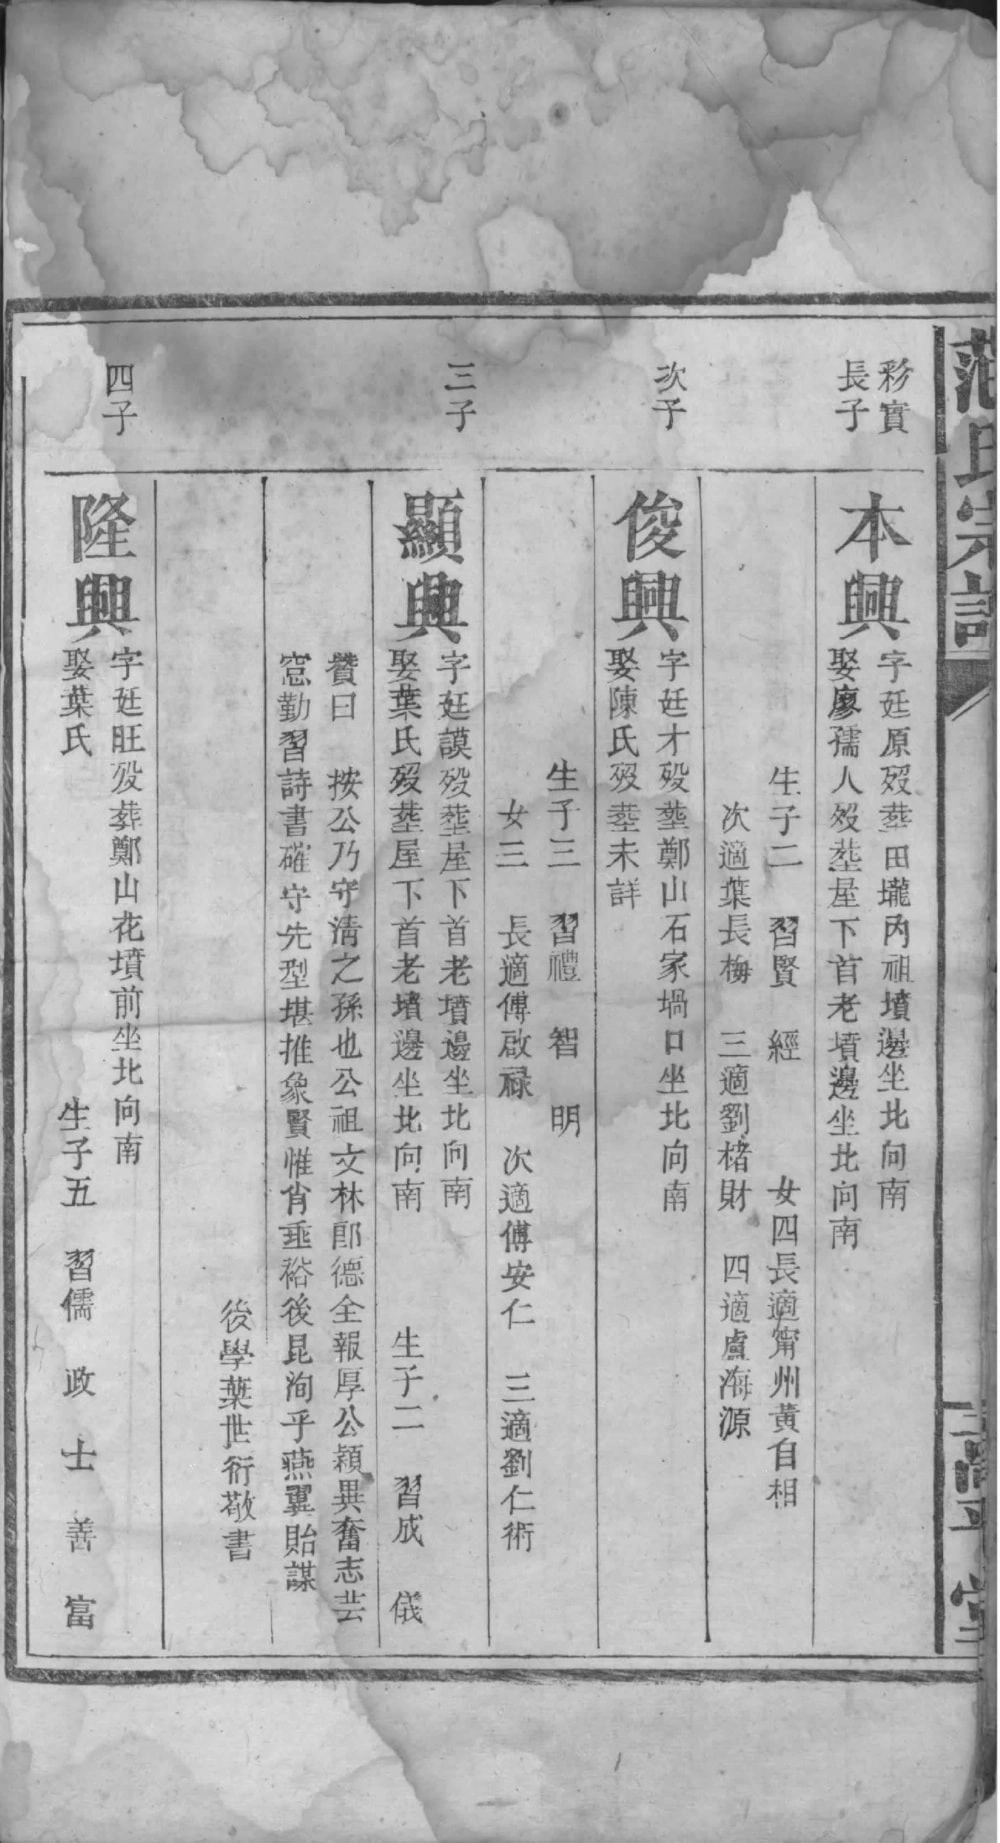 氏宗譜
堂
彩實
長子
本興
字廷原歿塟田壠內祖墳邊坐北向南
娶廖孺人歿塟屋下首老墳邊坐北向南
生子二 習賢 經 女四長適甯州黃自相
次適葉長梅 三適劉楮財 四適盧海源
次子
俊興
字廷才歿塟鄭山石家堝口坐北向南
娶陳氏歿塟未詳
生子三 習禮 智 明
女三 長適傅啟祿 次適傅安仁 三適劉仁術
三子
顯興
字廷謨歿塟屋下首老墳邊坐北向南
娶葉氏歿塟屋下首老墳邊坐北向南 生子二 習成 儀
贊曰 按公乃守淸之孫也公祖文林郎德全報厚公穎異奮志芸
窓勤習詩書確守先型堪推象賢惟肖垂裕後昆洵乎燕翼貽謀
後學葉世衍敬書
四子
隆興
字廷旺歿葬鄭山花墳前坐北向南
娶葉氏 生子五 習儒 政 士 善 富